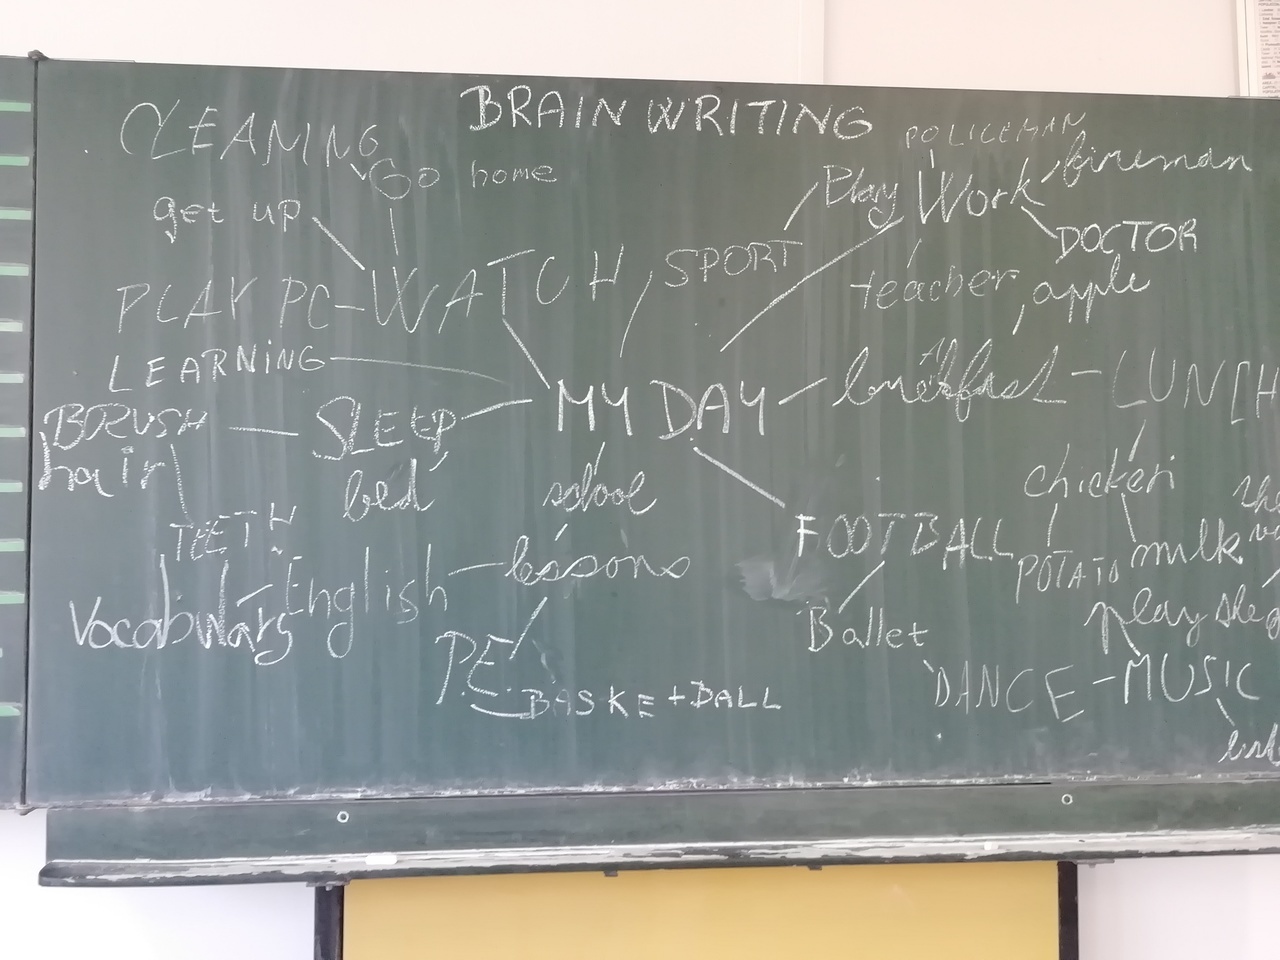 BRAIN WRITING
CLEANING
Go home
get up
POLICEMAN
Play Work fireman
DOCTOR
SPORT
teacher apple
PLAY PC-WATCH
LEARNING
MY DAY
LUNCH
BRUSH
hair
SLEEP
bed
TEETH
school
lessons
English
Vocabulary
P.E.
BASKETBALL
FOOTBALL
Ballet
DANCE - MUSIC
chicken
POTATO milk
play